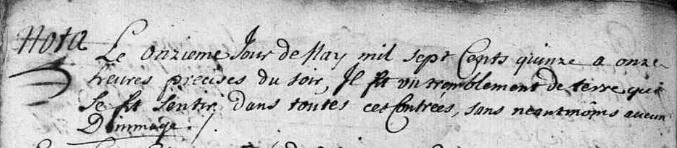 Nota Le onzieme Jour de May mil sept Cents quinze a onze
heures precises du soir, Il fit un tremblement de terre qui
se fit sentir dans toutes ces Contrées, sans neantmoins aucun
Dommage ./.